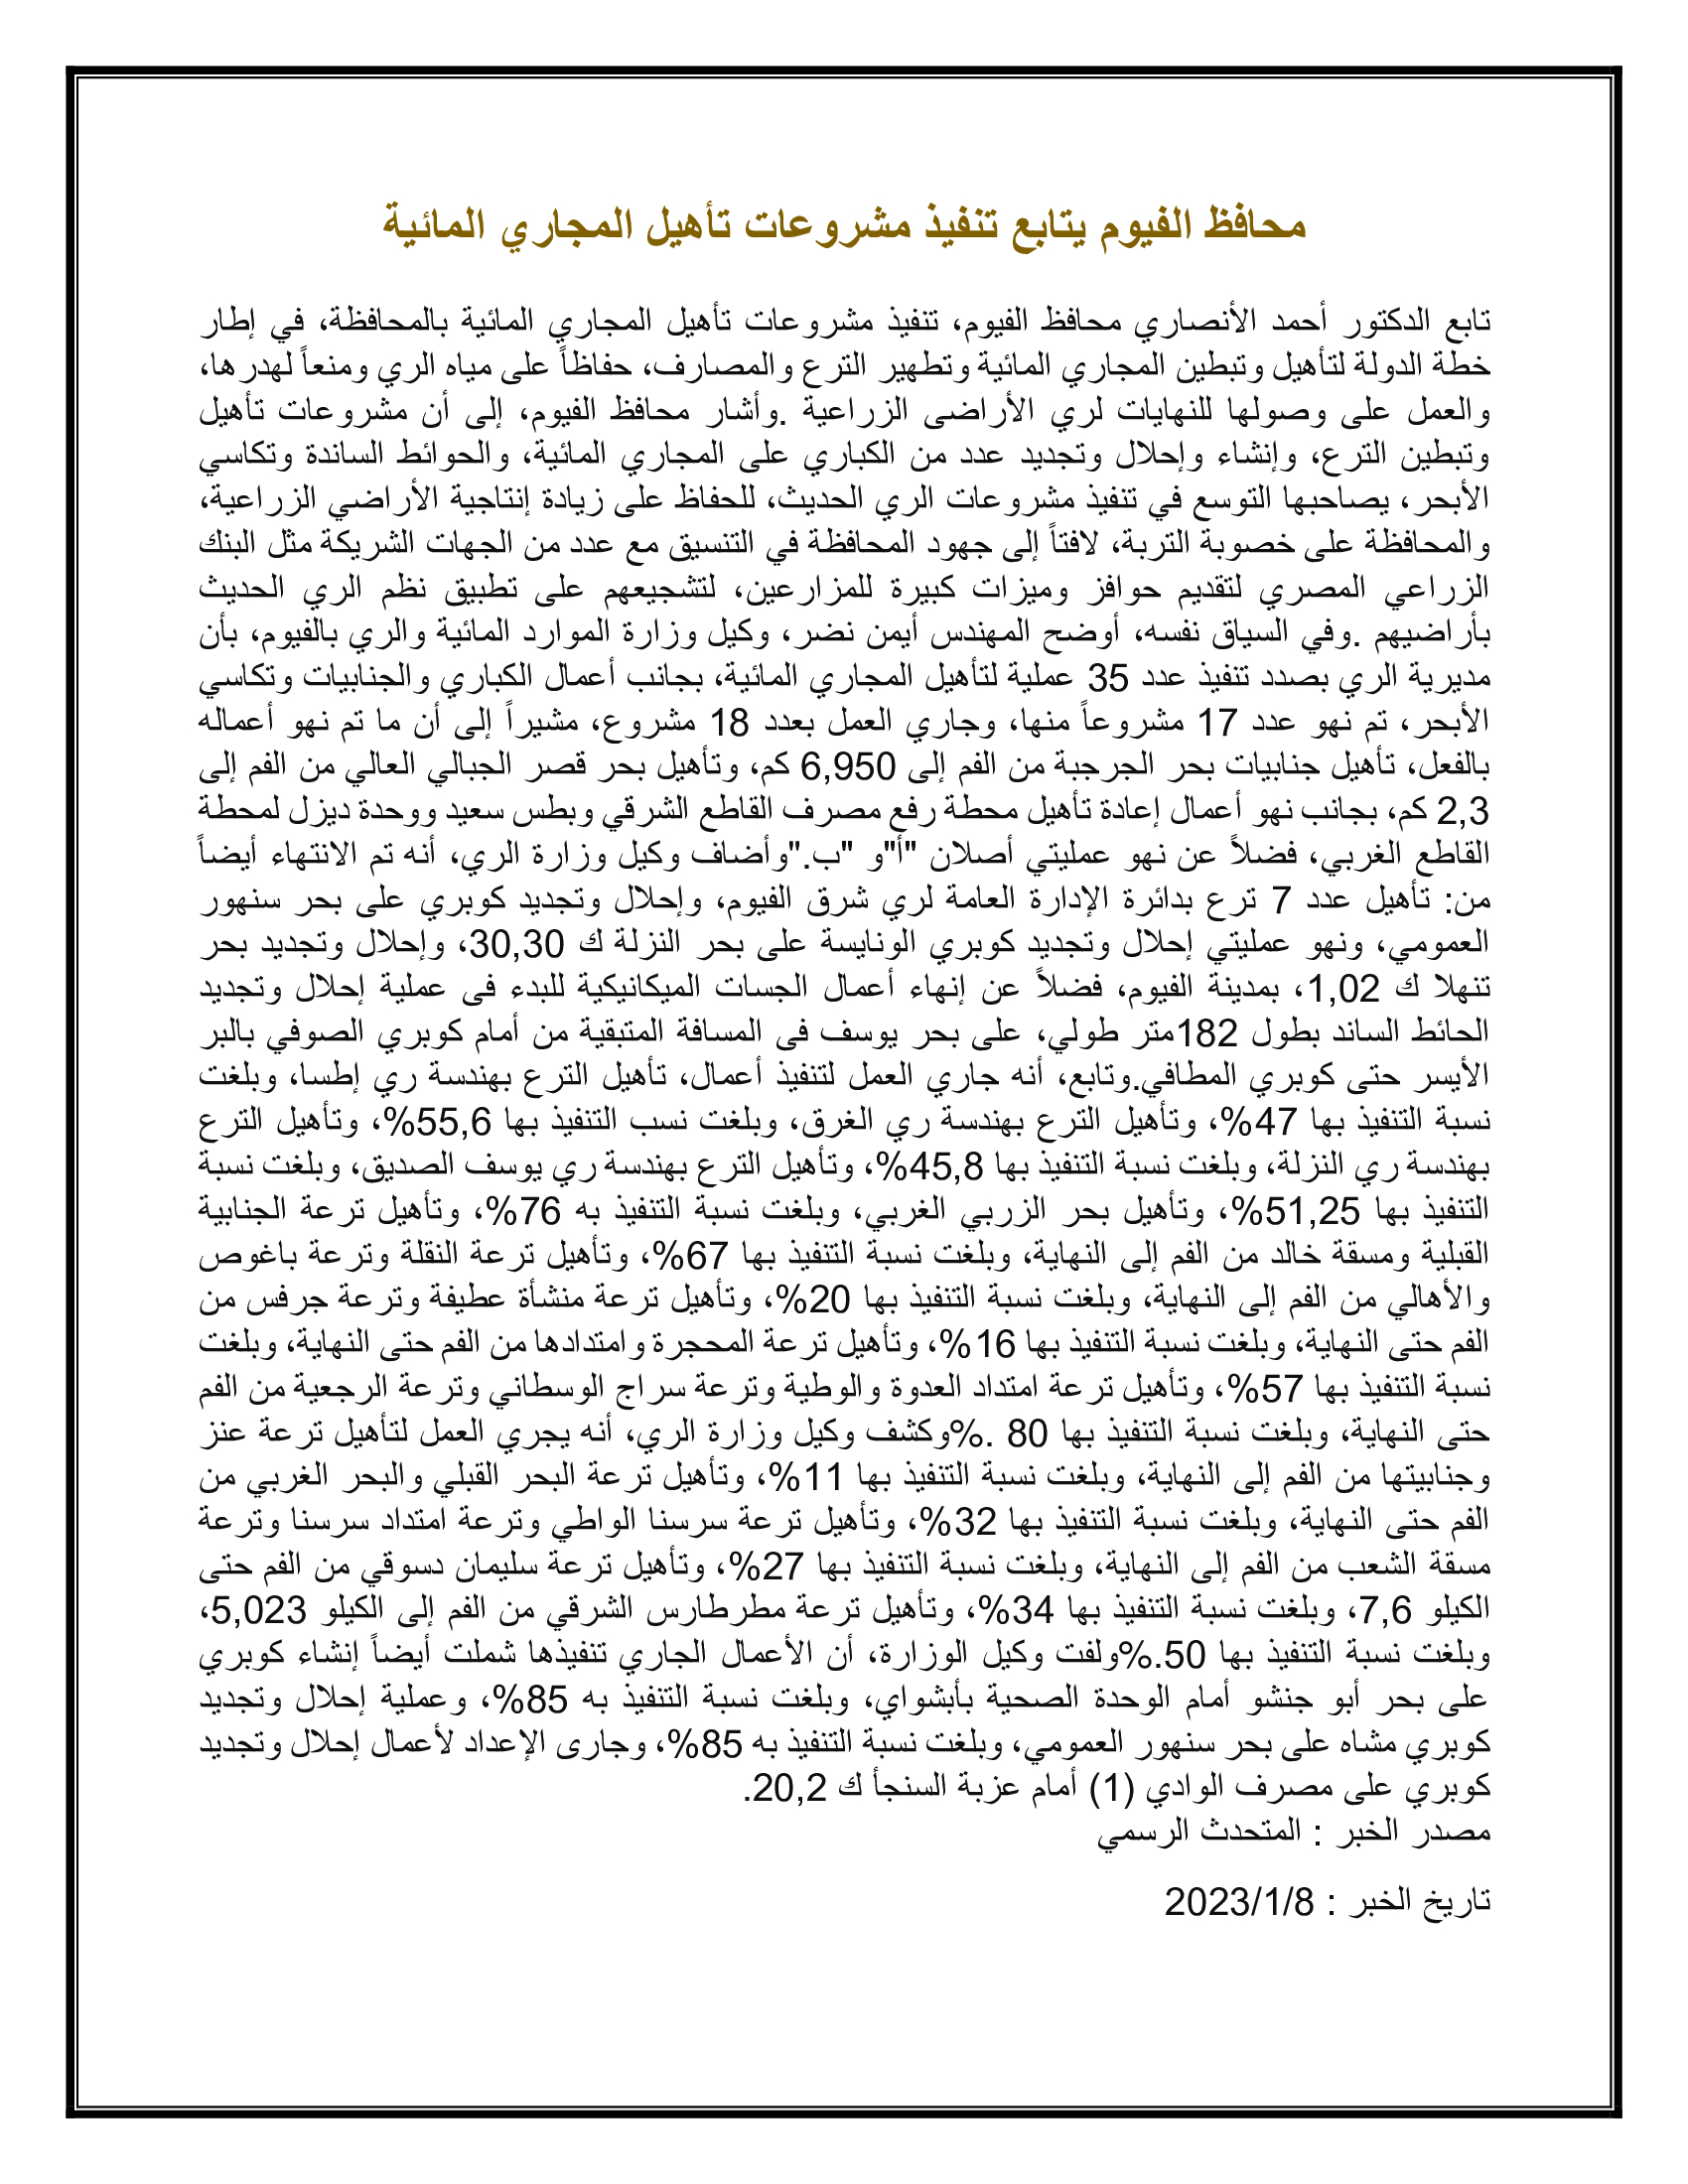 محافظ الفيوم يتابع تنفيذ مشروعات تأهيل المجاري المائية
تابع الدكتور أحمد الأنصاري محافظ الفيوم، تنفيذ مشروعات تأهيل المجاري المائية بالمحافظة، في إطار
خطة الدولة لتأهيل وتبطين المجاري المائية وتطهير الترع والمصارف، حفاظاً على مياه الري ومنعاً لهدرها،
والعمل على وصولها للنهايات لري الأراضى الزراعية .وأشار محافظ الفيوم، إلى أن مشروعات تأهيل
وتبطين الترع، وإنشاء وإحلال وتجديد عدد من الكباري على المجاري المائية، والحوائط الساندة وتكاسي
الأبحر، يصاحبها التوسع في تنفيذ مشروعات الري الحديث، للحفاظ على زيادة إنتاجية الأراضي الزراعية،
والمحافظة على خصوبة التربة، لافتاً إلى جهود المحافظة في التنسيق مع عدد من الجهات الشريكة مثل البنك
الزراعي المصري لتقديم حوافز وميزات كبيرة للمزارعين، لتشجيعهم على تطبيق نظم الري الحديث
بأراضيهم .وفي السياق نفسه، أوضح المهندس أيمن نضر، وكيل وزارة الموارد المائية والري بالفيوم، بأن
مديرية الري بصدد تنفيذ عدد 35 عملية لتأهيل المجاري المائية، بجانب أعمال الكباري والجنابيات وتكاسي
الأبحر، تم نهو عدد 17 مشروعاً منها، وجاري العمل بعدد 18 مشروع، مشيراً إلى أن ما تم نهو أعماله
بالفعل، تأهيل جنابيات بحر الجرجبة من الفم إلى 6,950 كم، وتأهيل بحر قصر الجبالي العالي من الفم إلى
2,3 كم، بجانب نهو أعمال إعادة تأهيل محطة رفع مصرف القاطع الشرقي وبطس سعيد ووحدة ديزل لمحطة
القاطع الغربي، فضلاً عن نهو عمليتي أصلان "أ"و "ب."وأضاف وكيل وزارة الري، أنه تم الانتهاء أيضاً
من: تأهيل عدد 7 ترع بدائرة الإدارة العامة لري شرق الفيوم، وإحلال وتجديد كوبري على بحر سنهور
العمومي، ونهو عمليتي إحلال وتجديد كوبري الونايسة على بحر النزلة ك 30,30، وإحلال وتجديد بحر
تنهلا ك 1,02، بمدينة الفيوم، فضلاً عن إنهاء أعمال الجسات الميكانيكية للبدء فى عملية إحلال وتجديد
الحائط الساند بطول 182متر طولي، على بحر يوسف فى المسافة المتبقية من أمام كوبري الصوفي بالبر
الأيسر حتى كوبري المطافي.وتابع، أنه جاري العمل لتنفيذ أعمال، تأهيل الترع بهندسة ري إطسا، وبلغت
نسبة التنفيذ بها 47%، وتأهيل الترع بهندسة ري الغرق، وبلغت نسب التنفيذ بها 55,6%، وتأهيل الترع
بهندسة ري النزلة، وبلغت نسبة التنفيذ بها 45,8%، وتأهيل الترع بهندسة ري يوسف الصديق، وبلغت نسبة
التنفيذ بها 51,25%، وتأهيل بحر الزربي الغربي، وبلغت نسبة التنفيذ به 76%، وتأهيل ترعة الجنابية
القبلية ومسقة خالد من الفم إلى النهاية، وبلغت نسبة التنفيذ بها 67%، وتأهيل ترعة النقلة وترعة باغوص
والأهالي من الفم إلى النهاية، وبلغت نسبة التنفيذ بها 20%، وتأهيل ترعة منشأة عطيفة وترعة جرفس من
الفم حتى النهاية، وبلغت نسبة التنفيذ بها 16%، وتأهيل ترعة المحجرة وامتدادها من الفم حتى النهاية، وبلغت
نسبة التنفيذ بها 57%، وتأهيل ترعة امتداد العدوة والوطية وترعة سراج الوسطاني وترعة الرجعية من الفم
حتى النهاية، وبلغت نسبة التنفيذ بها 80 .%وكشف وكيل وزارة الري، أنه يجري العمل لتأهيل ترعة عنز
وجنابيتها من الفم إلى النهاية، وبلغت نسبة التنفيذ بها 11%، وتأهيل ترعة البحر القبلي والبحر الغربي من
الفم حتى النهاية، وبلغت نسبة التنفيذ بها 32%، وتأهيل ترعة سرسنا الواطي وترعة امتداد سرسنا وترعة
مسقة الشعب من الفم إلى النهاية، وبلغت نسبة التنفيذ بها 27%، وتأهيل ترعة سليمان دسوقي من الفم حتى
الكيلو 7,6، وبلغت نسبة التنفيذ بها 34%، وتأهيل ترعة مطرطارس الشرقي من الفم إلى الكيلو 5,023،
وبلغت نسبة التنفيذ بها 50.%ولفت وكيل الوزارة، أن الأعمال الجاري تنفيذها شملت أيضاً إنشاء كوبري
على بحر أبو جنشو أمام الوحدة الصحية بأبشواي، وبلغت نسبة التنفيذ به 85%، وعملية إحلال وتجديد
كوبري مشاه على بحر سنهور العمومي، وبلغت نسبة التنفيذ به 85%، وجارى الإعداد لأعمال إحلال وتجديد
كوبري على مصرف الوادي (1) أمام عزبة السنجأ ك 20,2.
مصدر الخبر : المتحدث الرسمي
تاريخ الخبر : 2023/1/8